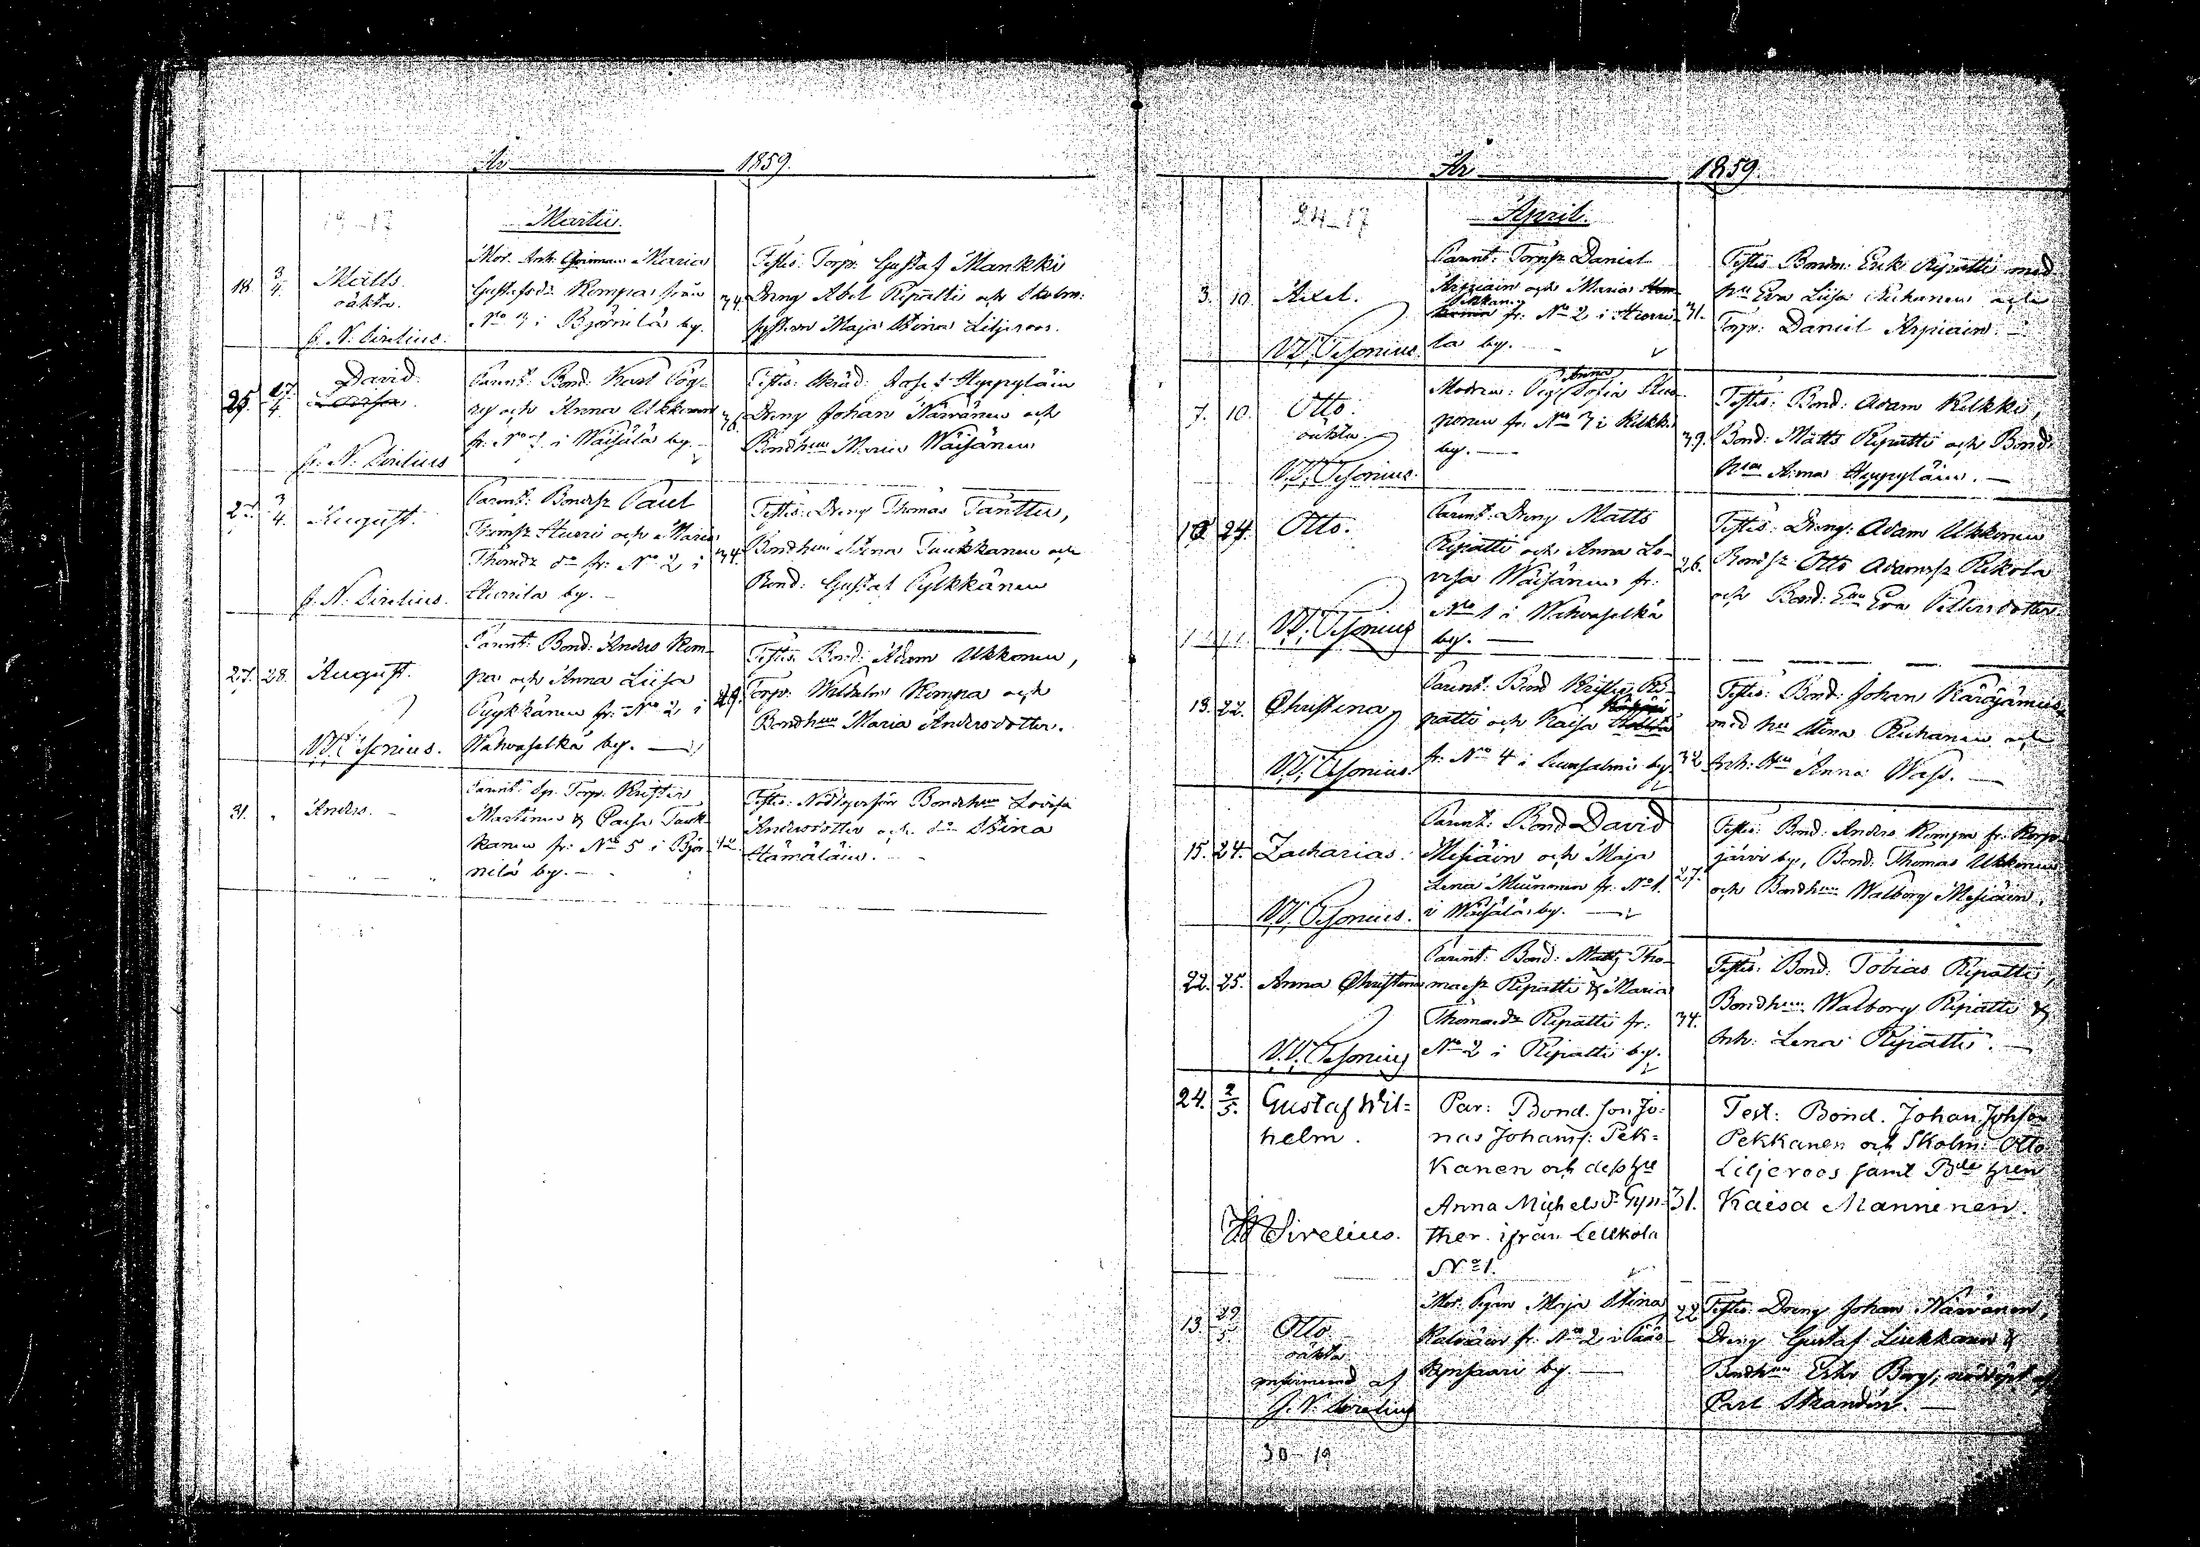 År 1859.
19-17
Martii.
18. 3/4. Matts
oäkta.
J. N. Sirelius.
Mor. Inh. Maria
Gustafsdr Kempa från
No 3 i Björnilä by.
34.
Testes: Torp: Gustaf Mankki
Dreng Abel Ripatti och Skolm:
Maja Stina Liljeroos.
25. 27/4. David
J. N. Sirelius
Parent: Bond: Karl Pög-
ry och Anna Ukkonen
fr. No 1 i Wäisälä by.
36.
Testes: Häyryläin
Dreng Johan Närvänen och
Bondhun Maria Wäisänen
27. 3/4. August.
J. N. Sirelius.
Parent: Bondsr Paul
Thomsr Huuri och Maria
Thomdr do fr: No 2 i
Hurrila by.
34.
Testes: Dreng Thomas Tanttu,
Bondhun Stina Tuukkanen och
Bond: Gustaf Pylkkänen
27. 28. August.
W. Pesonius.
Parent: Bond: Anders Kem-
pa och Anna Liisa
Pyykkänen fr: No 2 i
Wahvaselkä by.
29.
Testes: Bond: Adam Ukkonen,
Torp: Wilhelm Kempa och
Bondhun Maria Andersdotter.
31. Anders.
Parent: Sp. Torp: Krister
Martinen & Caisa Tuuk-
kanen fr: No 5 i Björ-
nilä by.
42.
Testes: Nöddopsförr Bondhun Lovisa
Andersdotter och do Stina
Hämäläin.
År 1859.
24-17
April.
3. 10. Axel.
W. Pesonius.
Parent: Torpsr Daniel
Arpiain och Maria
fr: No 2 i Hurri-
la by.
31.
Testes Bondn: Erik Ripatti med
hu Eva Liisa Pukanen och
Torp: Daniel Arpiain.
7. 10. Otto.
oäkta
W. Pesonius.
Modren: Pig: Anna Sofia
ponen fr. No 3 i Kilkki
by.
39.
Testes: Bond: Adam Kilkki,
Bond: Matts Ripatti och Bond:
hun Anna Häyryläin.
10 24. Otto.
W. Pesonius
Parent: Dreng Matts
Ripatti och Anna Lo-
visa Wäisänen fr:
No 1 i Wahvaselkä
by.
26.
Testes: Dreng: Adam Ukkonen
Bondsr Otto Adamsr Rikola
och Bond: Eva Pettersdotter.
13. 22. Christina
W. Pesonius.
Parent: Bond Krister Ri-
patti och Kaisa
fr: No 4 i Suursalmi by.
32.
Testes: Bond: Johan
med hu Stina Pukanen och
Inh: Hu Anna Wass.
15. 24. Zacharias.
W. Pesonius.
Parent: Bond David
Mesiäin och Maja
Lena Muunonen fr: No 1.
i Wäisälä by.
27.
Testes: Bond: Anders Kempa fr: Korpi-
järvi by, Bond: Thomas Ukkonen
och Bondhun Walborg Mesiäin.
22. 25. Anna Christina
W. Pesonius
Parent: Bond: Matts Tho-
massr Ripatti & Maria
Thomasdr Ripatti fr:
No 2 i Ripatti by.
34.
Testes: Bond: Tobias Ripatti,
Bondhun Walborg Ripatti &
Inh: Lena Ripatti.
24. 2/5. Gustaf Wil=
helm.
Sirelius.
Par: Bond. son Jo-
nas Johans: Pek=
kanen och dess hu
Anna Michelsdr Gyn-
ther ifrån Lellkola
No 1.
31.
Test: Bond. Johan Johsson
Pekkanen och Skolm: Otto
Liljeroos samt Bde hun
Kaisa Manninen.
13. 29/5. Otto
oäkta
af
J. N. Sirelius
Mor: Pigan Maja Stina
Kalväin fr. No 2 i
by.
22
Testes: Dreng Johan Närvänen,
Dreng Gustaf Liukkanen &
Bondhun Ester Berg, nöddöpt af
Carl Strandén.
30-19